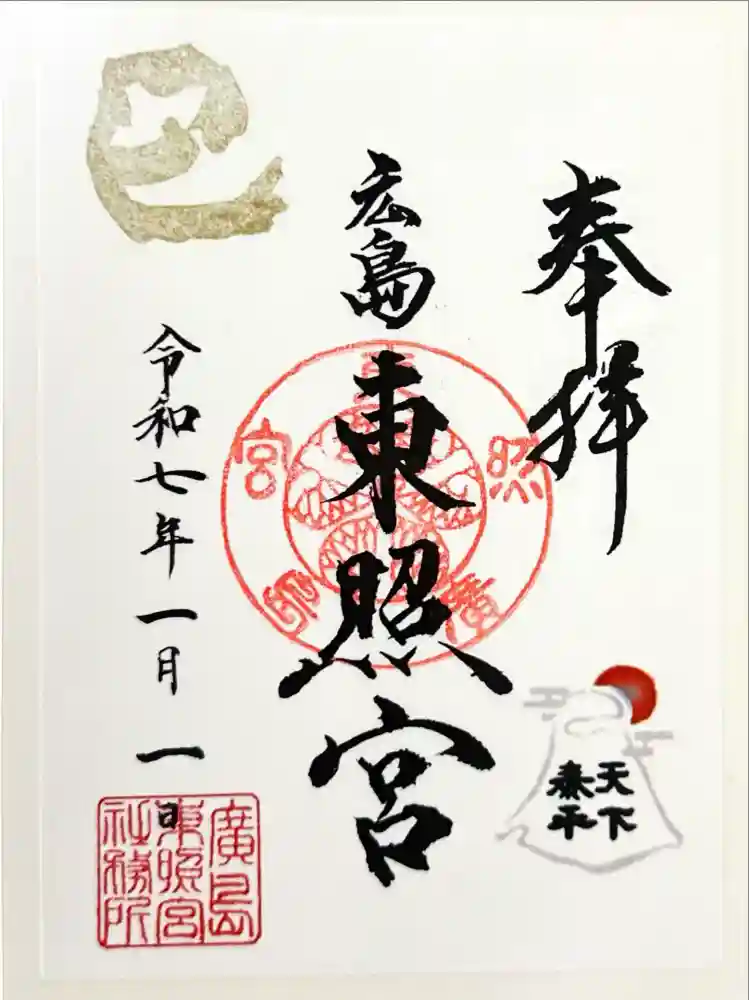 奉拝
広島東照宮
令和七年一月一日
巳
天下
泰平
東照廣師宮
廣島
東照宮
社務所